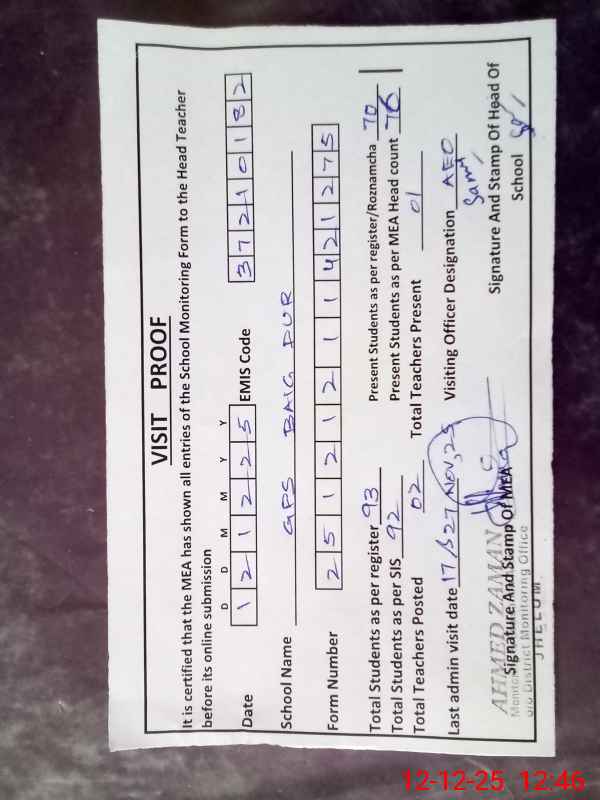 VISIT PROOF
It is certified that the MEA has shown all entries of the School Monitoring Form to the Head Teacher
before its online submission
D D M M Y Y
Date 1 2 1 2 2 5 EMIS Code 3 7 2 1 0 1 8 2
School Name GPS BAIG PUR
Form Number 2 5 1 2 1 2 1 1 4 2 1 2 7 5
Total Students as per register 93 Present Students as per register/Roznamcha 70
Total Students as per SIS 92 Present Students as per MEA Head count 76
Total Teachers Posted 02 Total Teachers Present 01
Last admin visit date 27 Nov, 25 Visiting Officer Designation AEO
AHMED ZAMAN
Signature And Stamp Of MEA Signature And Stamp Of Head Of
School
o/o District Monitoring Office
JHELUM
12-12-25 12:46